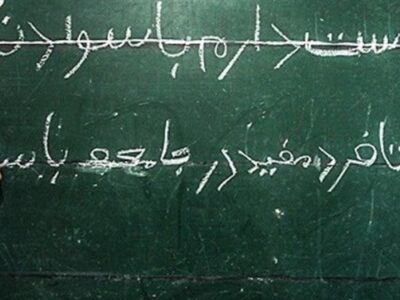 ست دارم باسواد
تا فرد مفید در جامعه با